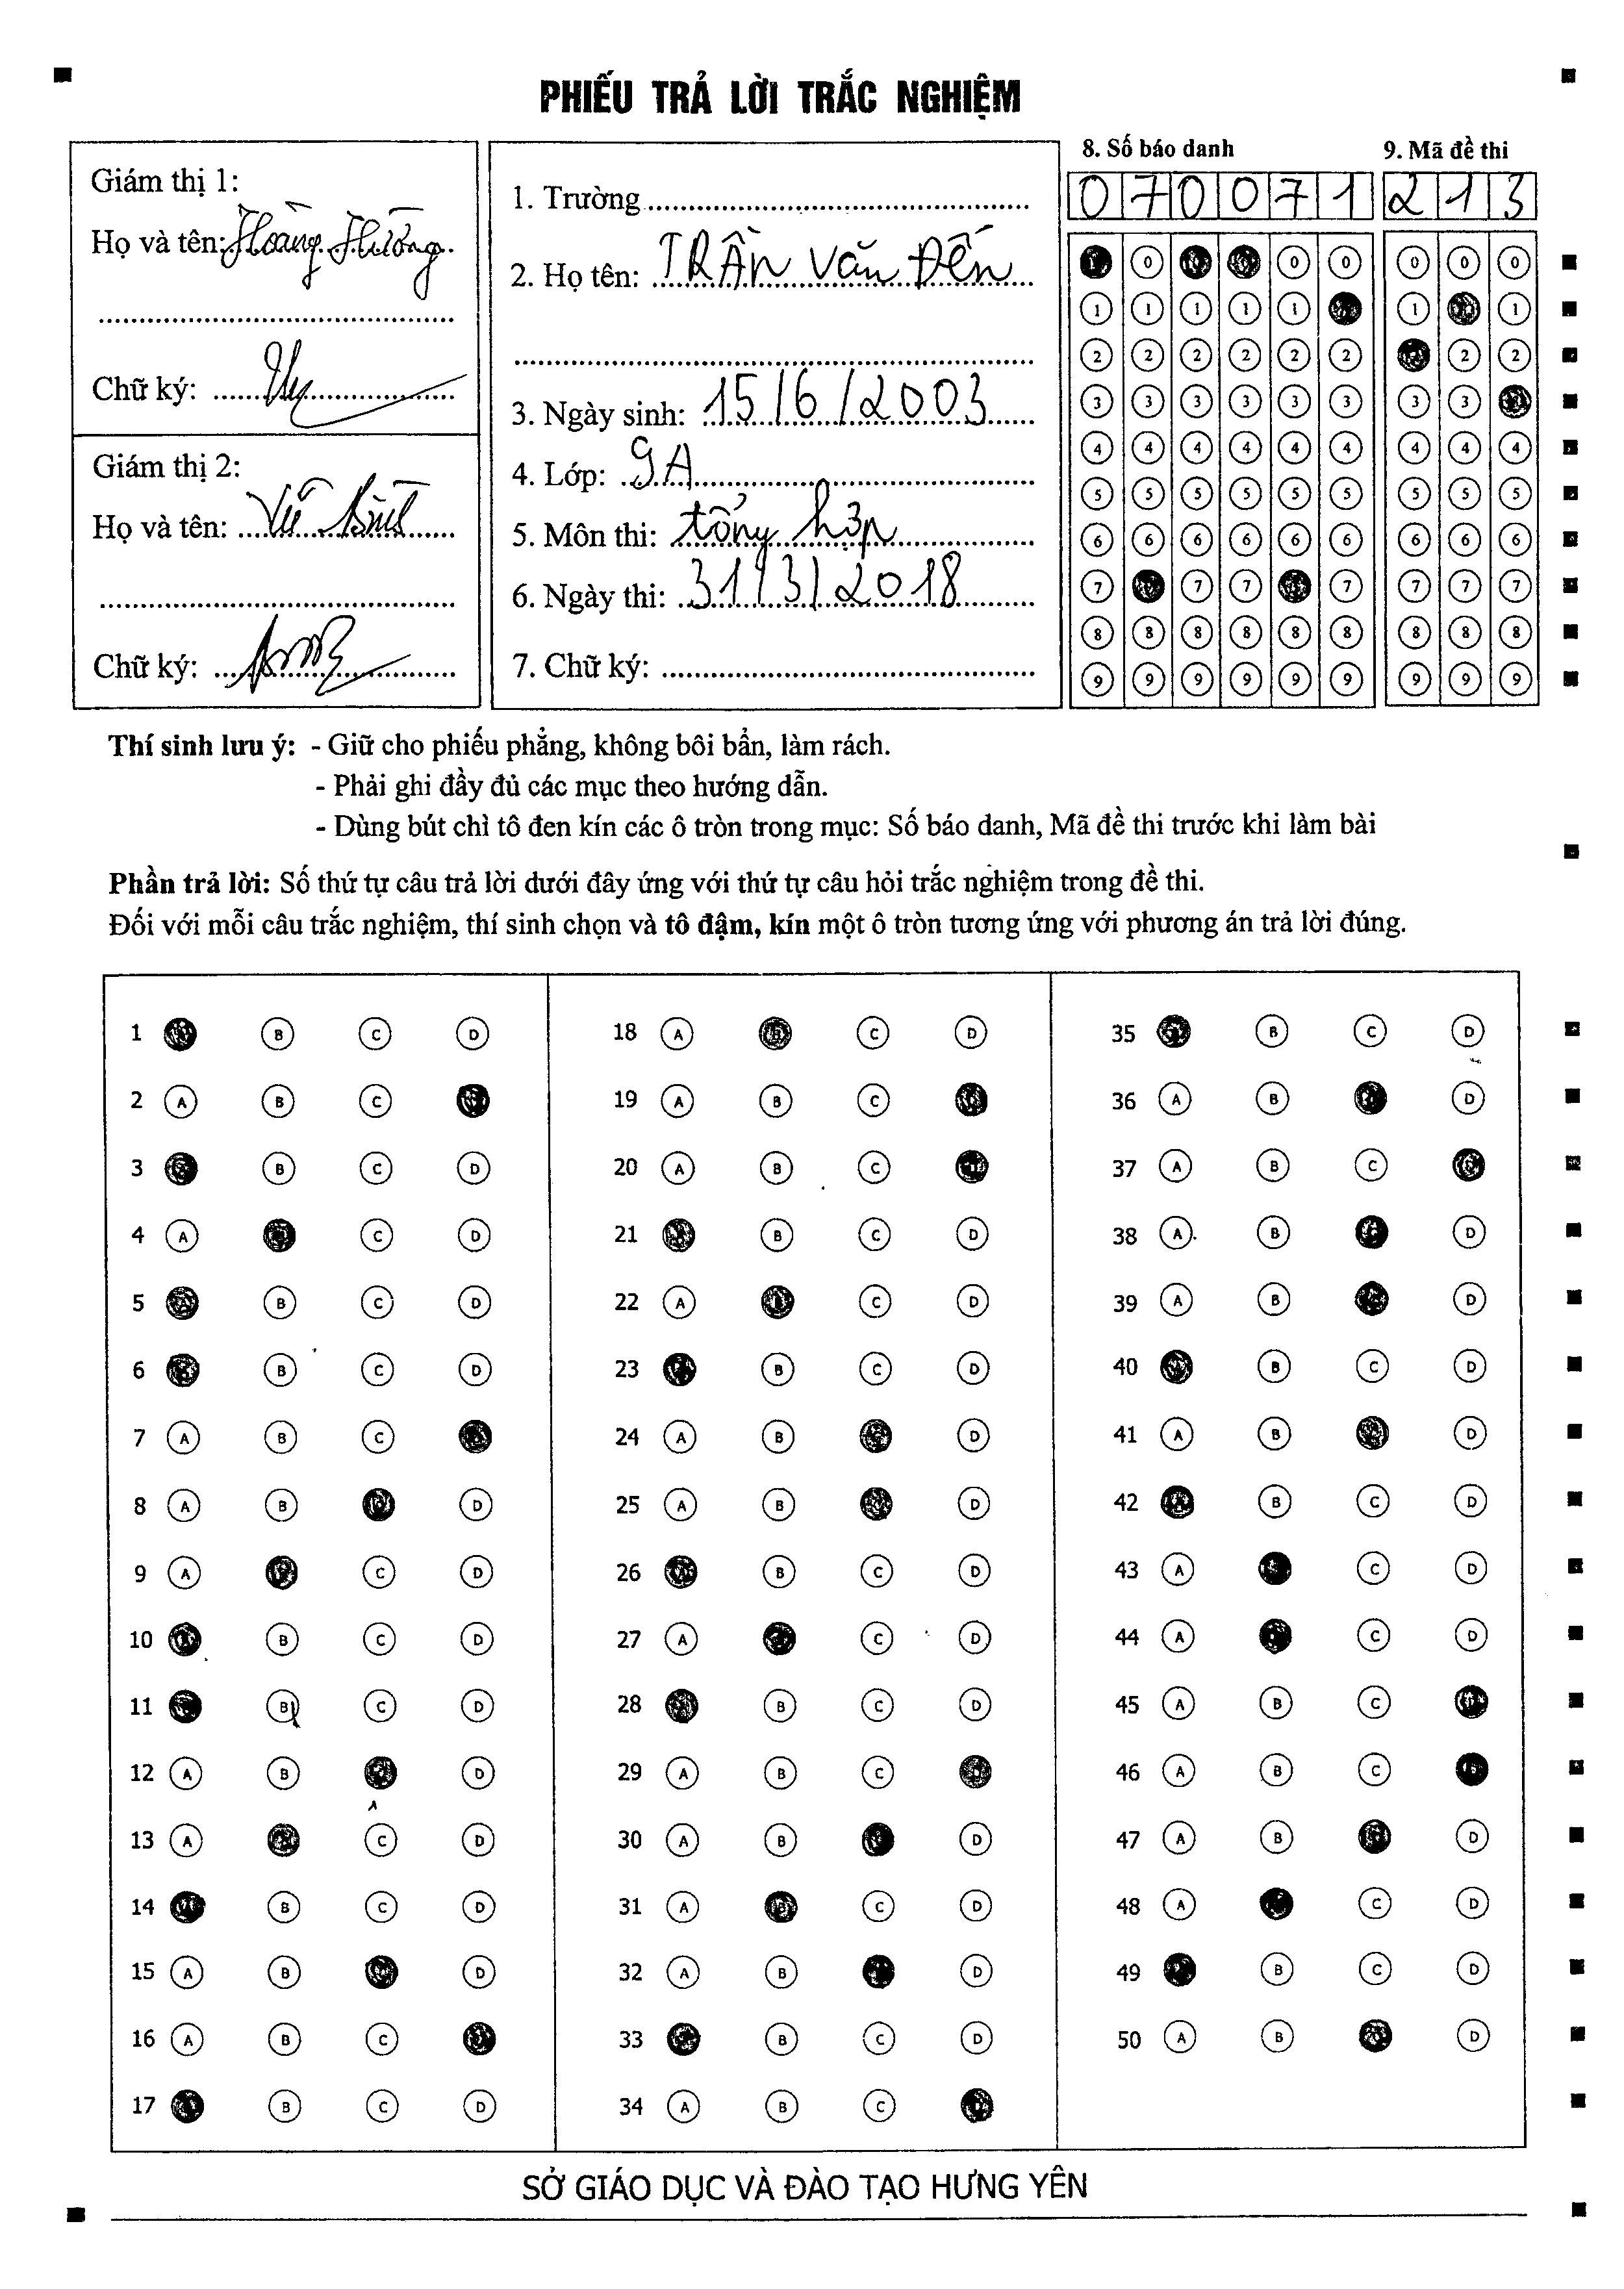 PHIẾU TRẢ LỜI TRẮC NGHIỆM
Giám thị 1:
Họ và tên: Hoàng Hường
Chữ ký:
Giám thị 2:
Họ và tên: Vũ
Chữ ký:
1. Trường
2. Họ tên: TRẦN Văn Đến
3. Ngày sinh: 15/6/2003
4. Lớp: 9A
5. Môn thi: tổng hợp
6. Ngày thi: 31/3/2018
7. Chữ ký:
8. Số báo danh
0 7 0 0 7 1
0 0 0
1 1 1 1 1
2 2 2 2 2 2
3 3 3 3 3 3
4 4 4 4 4 4
5 5 5 5 5 5
6 6 6 6 6 6
7 7 7 7
8 8 8 8 8 8
9 9 9 9 9 9
9. Mã đề thi
2 1 3
0 0 0
1 1
2 2
3 3
4 4 4
5 5 5
6 6 6
7 7 7
8 8 8
9 9 9
Thí sinh lưu ý: - Giữ cho phiếu phẳng, không bôi bẩn, làm rách.
- Phải ghi đầy đủ các mục theo hướng dẫn.
- Dùng bút chì tô đen kín các ô tròn trong mục: Số báo danh, Mã đề thi trước khi làm bài
Phần trả lời: Số thứ tự câu trả lời dưới đây ứng với thứ tự câu hỏi trắc nghiệm trong đề thi.
Đối với mỗi câu trắc nghiệm, thí sinh chọn và tô đậm, kín một ô tròn tương ứng với phương án trả lời đúng.
1 B C D
2 A B C
3 B C D
4 A C D
5 B C D
6 B C D
7 A B C
8 A B D
9 A C D
10 B C D
11 B C D
12 A B D
13 A C D
14 B C D
15 A B D
16 A B C
17 B C D
18 A B C D
19 A B C
20 A B C
21 B C D
22 A C D
23 B C D
24 A B D
25 A B D
26 B C D
27 A C D
28 B C D
29 A B C
30 A B D
31 A B C D
32 A B D
33 B C D
34 A B C
35 B C D
36 A B D
37 A B C
38 A B D
39 A B D
40 B C D
41 A B D
42 B C D
43 A C D
44 A C D
45 A B C
46 A B C
47 A B D
48 A C D
49 B C D
50 A B D
SỞ GIÁO DỤC VÀ ĐÀO TẠO HƯNG YÊN